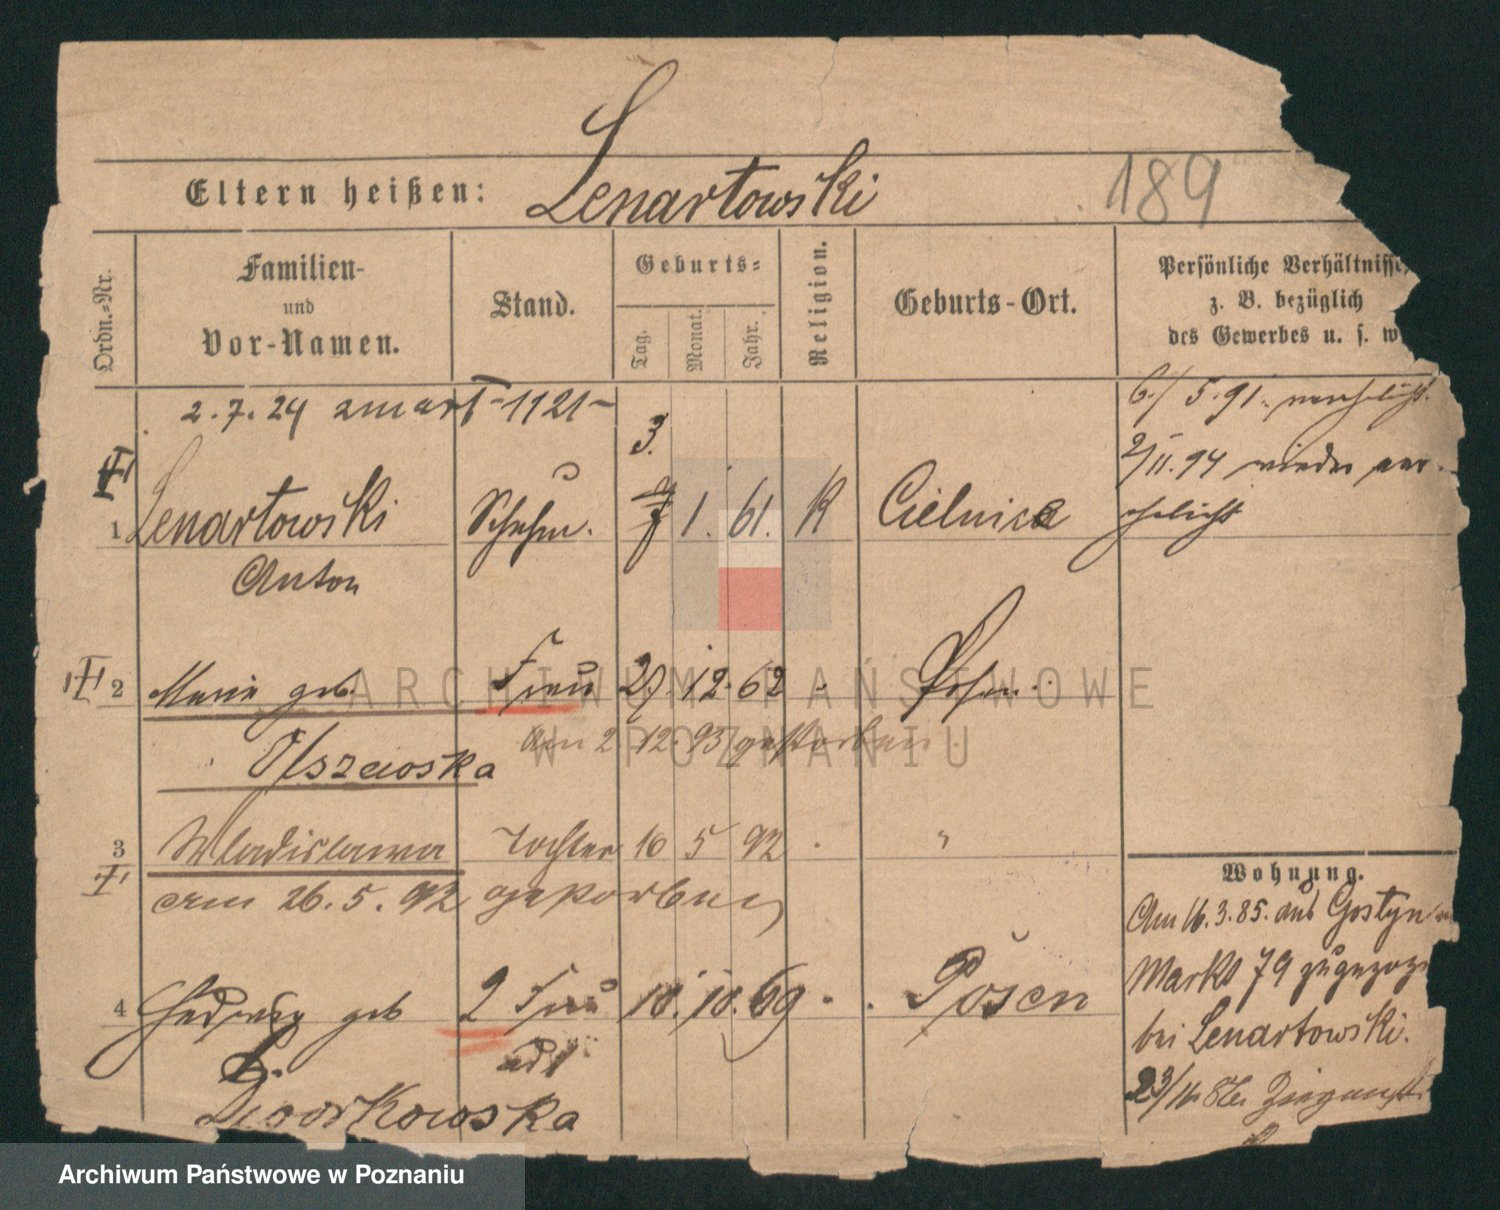 Eltern heißen: Lenartowski 189
Ordn.-Nr.
Familien-
und
Vor-Namen.
Stand.
Geburts-
Tag.
Monat.
Jahr.
Religion.
Geburts-Ort.
Persönliche Verhältnisse
z. B. bezüglich
des Gewerbes u. s. w
2.7.24 zmarł 1121
6/5.91. verehelicht.
3.
2/II.94 wieder ver-
1 Lenartowski Schuhm. 1. 61. K Cielnice ehelicht
Anton
2 Marie geb. Frau 12. 62 Posen.
Olszewska
am 2.12.93 gestorben.
3 Wladislawa Tochter 10 5 92 "
am 26.5.92 gestorben
4 Hedwig geb 2 Frau 10. 10. 69 Posen
Dziorkowska
Wohnung.
Am 16.3.85. aus Gostyn
Markt 79 zugezogen
bei Lenartowski.
ARCHIWUM PAŃSTWOWE
W POZNANIU
Archiwum Państwowe w Poznaniu